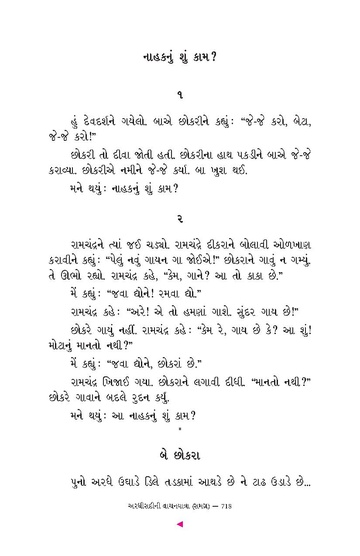 નાહકનું શું કામ?
૧
હું દેવદર્શને ગયેલો. બાએ છોકરીને કહ્યું: “જે-જે કરો, બેટા,
જે-જે કરો!”
છોકરી તો દીવા જોતી હતી. છોકરીના હાથ પકડીને બાએ જે-જે
કરાવ્યા. છોકરીએ નમીને જે-જે કર્યા. બા ખુશ થઈ.
મને થયું: નાહકનું શું કામ?
૨
રામચંદ્રને ત્યાં જઈ ચડ્યો. રામચંદ્રે દીકરાને બોલાવી ઓળખાણ
કરાવીને કહ્યું: “પેલું નવું ગાયન ગા જોઈએ!” છોકરાને ગાવું ન ગમ્યું.
તે ઊભો રહ્યો. રામચંદ્ર કહે, “કેમ, ગાને? આ તો કાકા છે.”
મેં કહ્યું: “જવા દ્યોને! રમવા દ્યો.”
રામચંદ્ર કહે: “અરે! એ તો હમણાં ગાશે. સુંદર ગાય છે!”
છોકરે ગાયું નહીં. રામચંદ્ર કહે: “કેમ રે, ગાય છે કે? આ શું!
મોટાનું માનતો નથી?”
મેં કહ્યું: “જવા દ્યોને, છોકરાં છે.”
રામચંદ્ર ખિજાઈ ગયા. છોકરાને લગાવી દીધી. “માનતો નથી?”
છોકરે ગાવાને બદલે રુદન કર્યું.
મને થયું: આ નાહકનું શું કામ?
*
બે છોકરા
પુનો અરધે ઉઘાડે ડિલે તડકામાં આથડે છે ને ટાઢ ઉડાડે છે...
અરધીસદીની વાચનયાત્રા (સમગ્ર) — 718